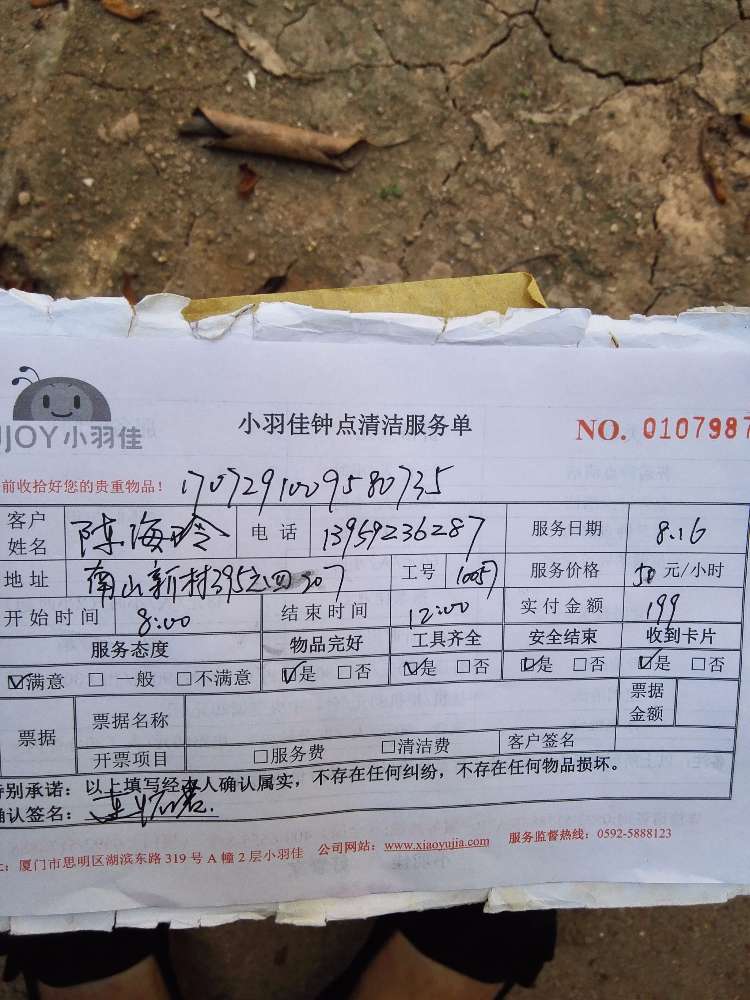 小羽佳钟点清洁服务单 NO. 0107987
JOY小羽佳
前收拾好您的贵重物品! 1707291009580735
客户姓名 陈海玲 电话 13959236287 服务日期 8.16
地址 南山新村395之四207 工号 1005 服务价格 50 元/小时
开始时间 8:00 结束时间 12:00 实付金额 199
服务态度 物品完好 工具齐全 安全结束 收到卡片
☑满意 □ 一般 □不满意 ☑是 □否 ☑是 □否 ☑是 □否 ☑是 □否
票据 票据名称 票据金额
开票项目 □服务费 □清洁费 客户签名
特别承诺:以上填写经本人确认属实,不存在任何纠纷,不存在任何物品损坏。
确认签名:
:厦门市思明区湖滨东路 319 号 A 幢 2 层小羽佳 公司网站:www.xiaoyujia.com 服务监督热线:0592-5888123